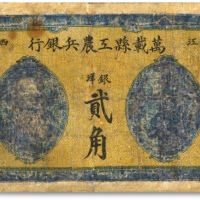 江西
萬載縣工農兵銀行
銀洋
貳角